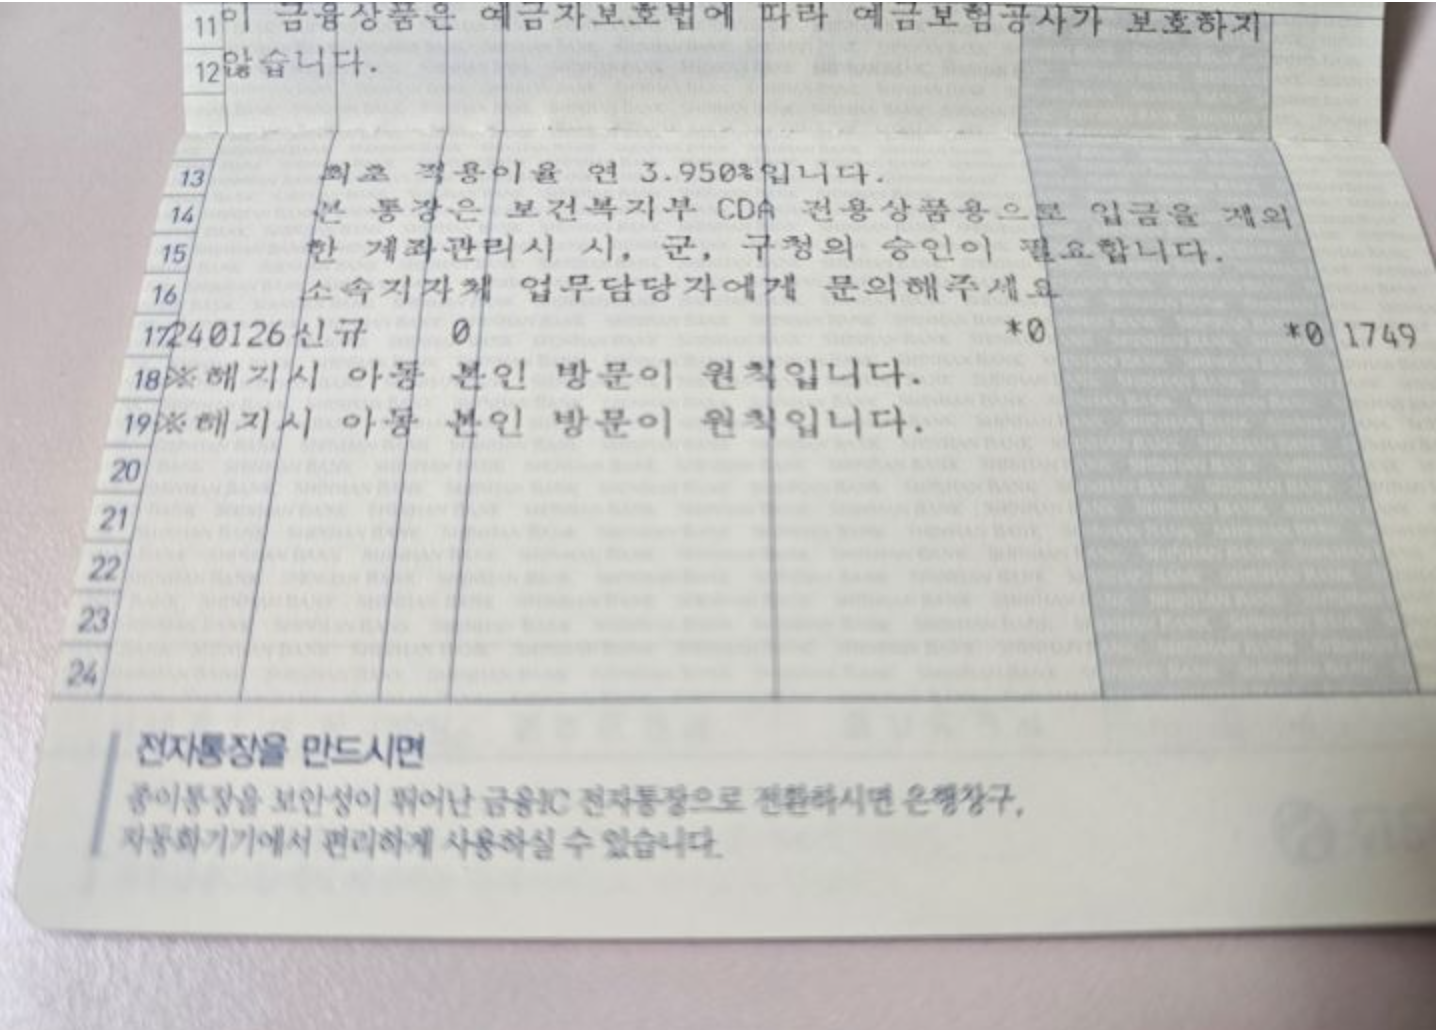 11이 금융상품은 예금자보호법에 따라 예금보험공사가 보호하지
12않습니다.
13 최초 적용이율 연 3.950%입니다.
14 본 통장은 보건복지부 CDA 전용상품용으로 입금을 제외
15 한 계좌관리시 시, 군, 구청의 승인이 필요합니다.
16 소속지자체 업무담당자에게 문의해주세요
17240126신규 0 *0 *0 1749
18※해지시 아동 본인 방문이 원칙입니다.
19※해지시 아동 본인 방문이 원칙입니다.
20
21
22
23
24
전자통장을 만드시면
종이통장을 보안성이 뛰어난 금융IC 전자통장으로 전환하시면 은행창구,
자동화기기에서 편리하게 사용하실 수 있습니다.